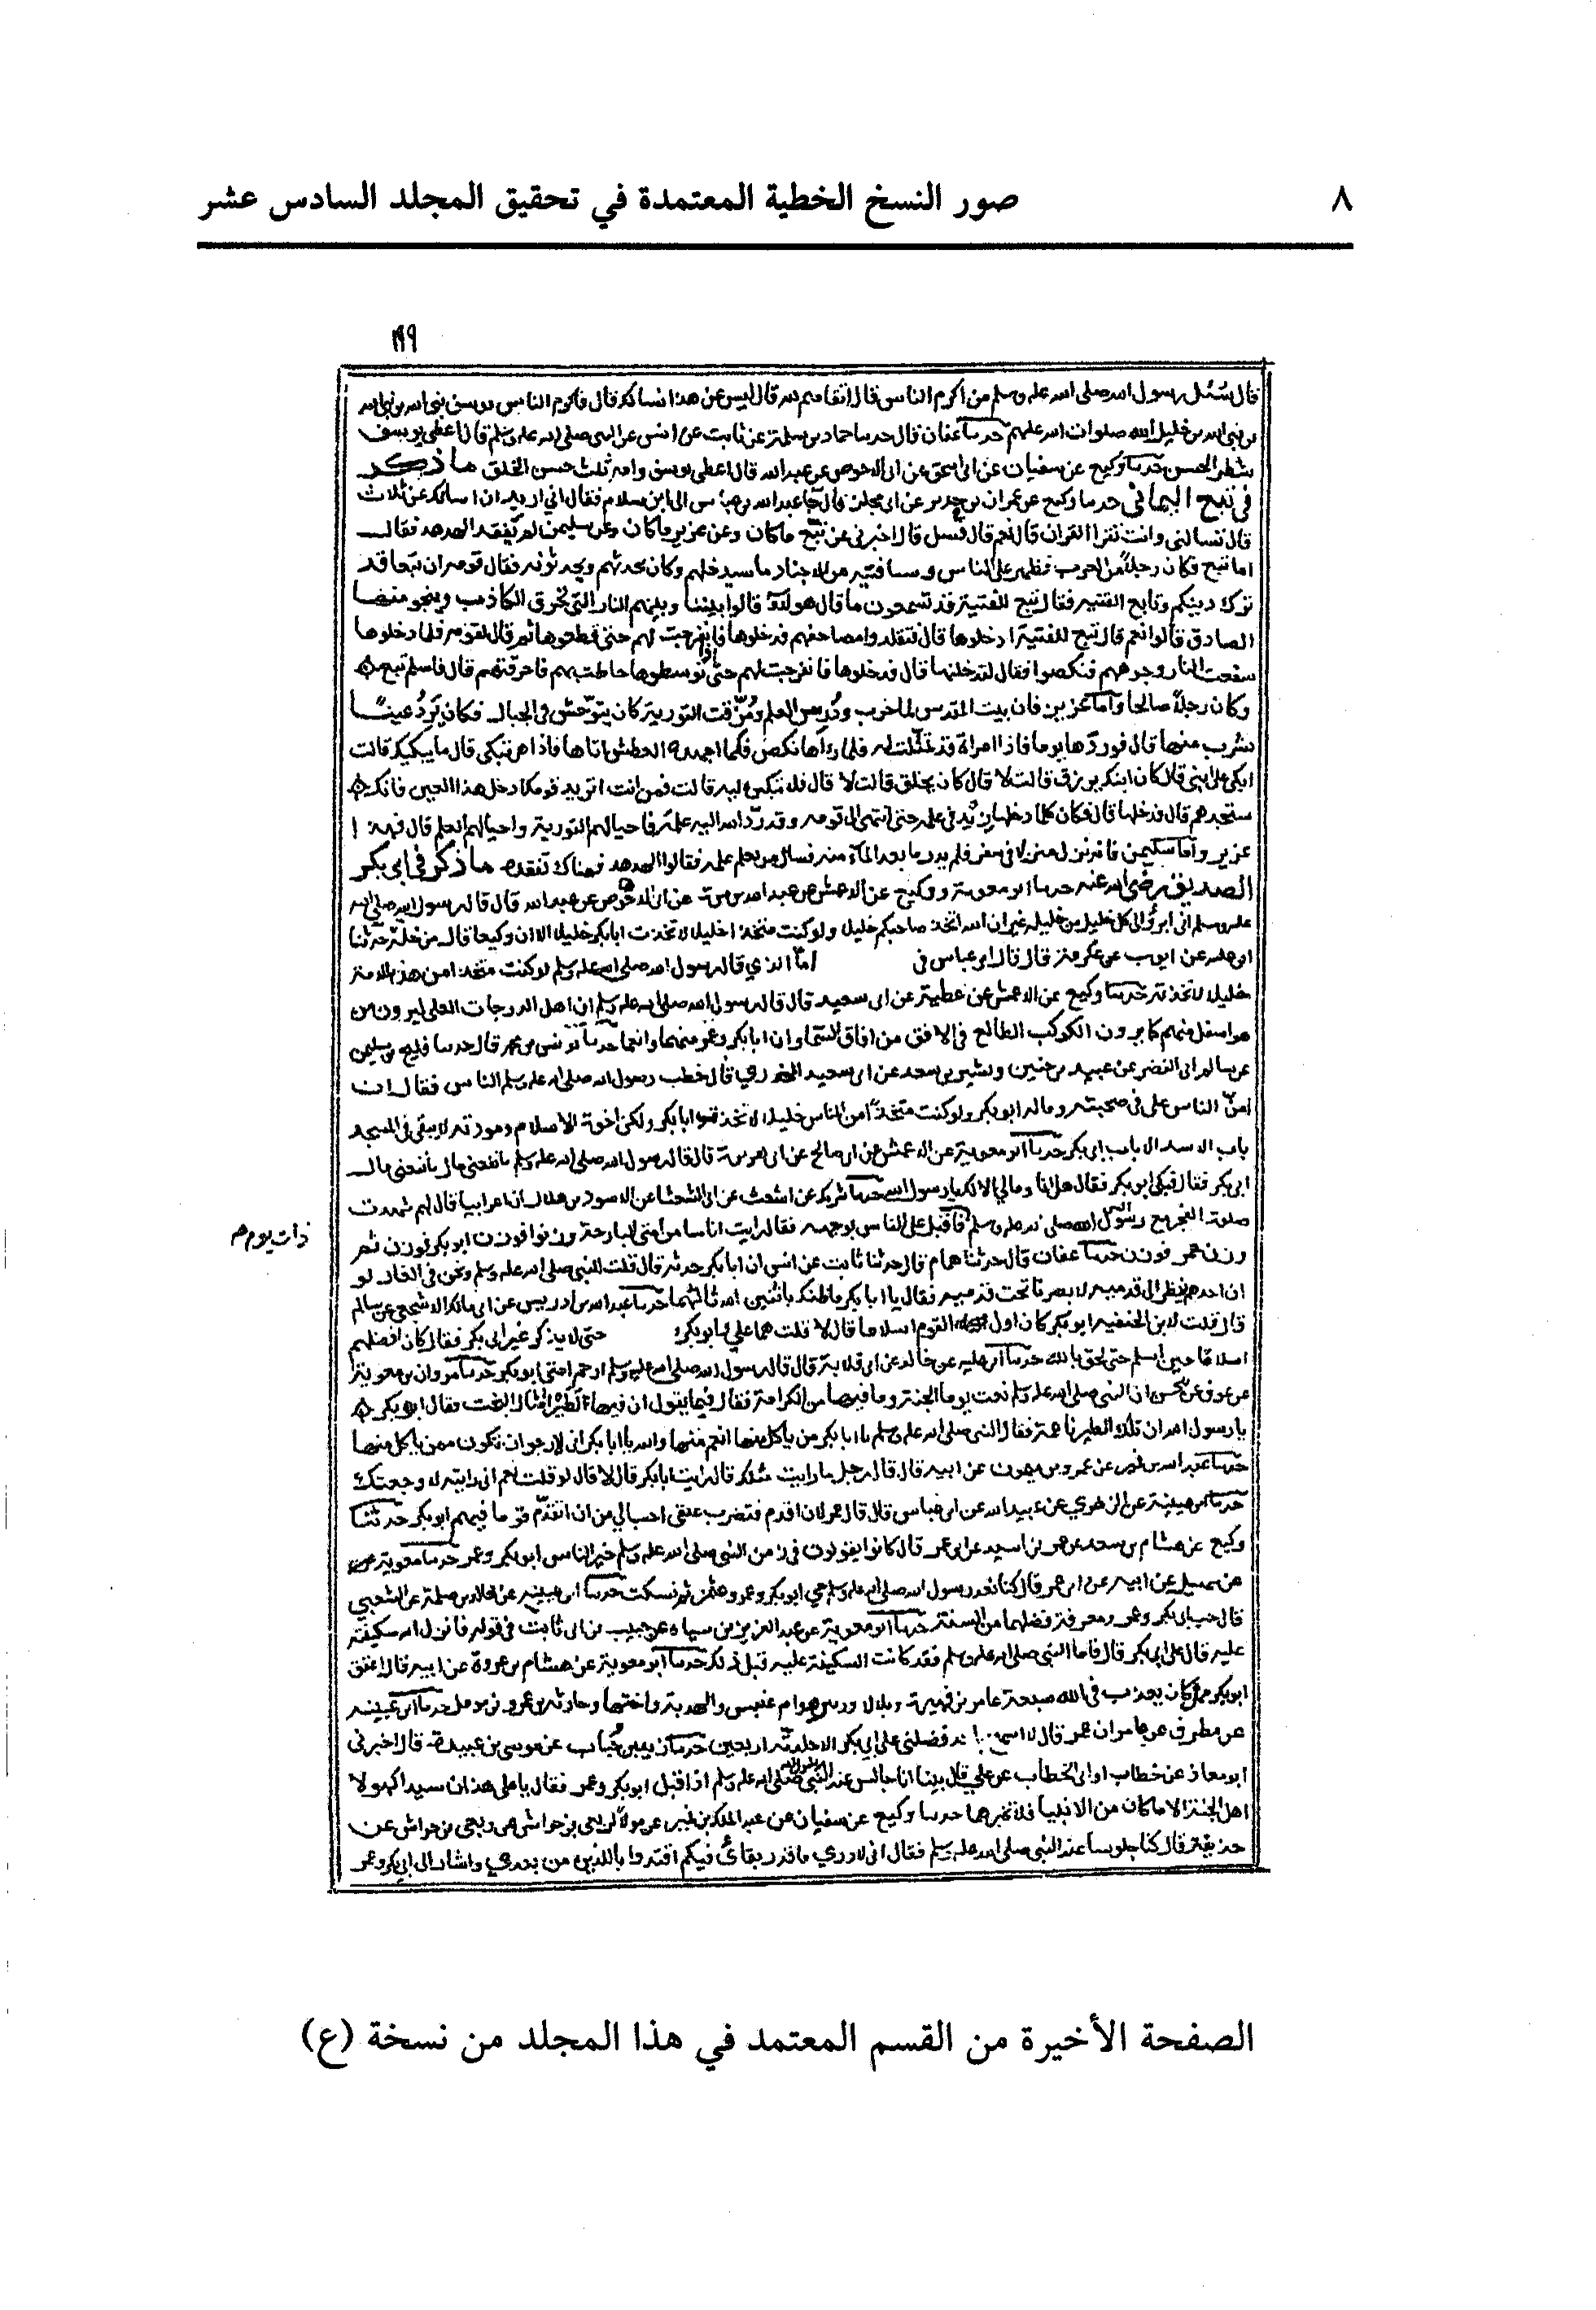 ٨
صور النسخ الخطية المعتمدة في تحقيق المجلد السادس عشر
١٩٩
قال سئل رسول الله صلى الله عليه وسلم من اكرم الناس قال اتقاهم لله قال ليس عن هذا نسالك قال فاكرم الناس يوسف نبي الله بن نبي الله
بن نبي الله بن خليل الله صلوات الله عليهم حدثنا عفان قال حدثنا حماد بن سلمة عن ثابت عن انس عن النبي صلى الله عليه وسلم قال اعطي يوسف
شطر الحسن حدثنا وكيع عن سفيان عن ابي اسحق عن ابي الاحوص عن عبد الله قال اعطي يوسف وامه ثلث حسن الخلق ما ذكر
في تبع اليماني حدثنا وكيع عن عمران بن حدير عن ابي مجلز قال جا عبد الله بن عباس الى ابن سلام فقال اني اريد ان اسالك عن ثلاث
قال تسالني وانت تقرا القران قال نعم قال فسل قال اخبرني عن تبع ما كان وعن عزير ما كان وعن سليمن لم تفقد الهدهد فقال
اما تبع فكان رجلا من العرب فظهر على الناس وسبا فتية من الاحبار فاستدخلهم وكان يحدثهم ويحدثونه فقال قومه ان تبعا قد
ترك دينكم وتابع الفتية فقال تبع للفتية قد تسمعون ما قال هولاء قالوا بيننا وبينهم النار التي تحرق الكاذب وينجو منها
الصادق قالوا نعم قال تبع للفتية ادخلوها قال فتقلدوا مصاحفهم فدخلوها فانفرجت لهم حتى قطعوها ثم قال لقومه فلما دخلوها
سفعت النار وجوههم فنكصوا فقال لتدخلنها قال فدخلوها فانفرجت لهم حتى اذا توسطوها احاطت بهم فاحرقتهم قال فاسلم تبع
وكان رجلا صالحا واما عزير فان بيت المقدس لما خرب ودرس العلم ومزقت التورية كان يتوحش في الجبال فكان يرد عينا
يشرب منها قال فوردها يوما فاذا امراة قد تمثلت له فلما رآها نكص فلما اجهده العطش اتاها فاذا هي تبكي قال ما يبكيك قالت
ابكي على ابني قال كان ابنك يرزق قالت لا قال كان يخلق قالت لا قال فلا تبكي عليه قالت فمن انت اتريد قومك ادخل هذا العين فانك
ستجدهم قال فدخلها قال فكان كلما دخلها زيد في علمه حتى انتهى الى قومه وقد رد الله اليه علمه فاحيا لهم التورية واحيا لهم العلم قال فهذا
عزير واما سليمن فانه نزل منزلا في سفر فلم يدر ما بعد الماء منه فسال من يعلم علمه فقالوا الهدهد فهناك تفقده ما ذكر في ابي بكر
الصديق رضي الله عنه حدثنا ابو معوية ووكيع عن الاعمش عن عبد الله بن مرة عن ابي الاحوص عن عبد الله قال قال رسول الله صلى الله
عليه وسلم اني ابرؤ الى كل خليل من خليله غير ان الله اتخذ صاحبكم خليلا ولو كنت متخذا خليلا لاتخذت ابا بكر خليلا الا ان وكيعا قال من خله حدثنا
ابن علية عن ايوب عن عكرمة قال قال ابن عباس في اما الذي قال رسول الله صلى الله عليه وسلم لو كنت متخذا من هذه الامة
خليلا لاتخذته حدثنا وكيع عن الاعمش عن عطية عن ابي سعيد قال قال رسول الله صلى الله عليه وسلم ان اهل الدرجات العلى ليرون من
هو اسفل منهم كما يرون الكوكب الطالع في الافق من افاق السما وان ابا بكر وعمر منهما وانعما حدثنا يونس بن محمد قال حدثنا فليح بن سليمن
عن سالم ابي النضر عن عبيد بن حنين وبشير بن سعد عن ابي سعيد الخدري قال خطب رسول الله صلى الله عليه وسلم الناس فقال ان
امن الناس علي في صحبته وماله ابو بكر ولو كنت متخذا من الناس خليلا لاتخذته ابا بكر ولكن اخوة الاسلام ومودته لا يبقى في المسجد
باب الا سد الا باب ابي بكر حدثنا ابو معوية عن الاعمش عن ابي صالح عن ابي هريرة قال قال رسول الله صلى الله عليه وسلم ما نفعني مال ما نفعني مال
ابي بكر فقال فبكى ابو بكر فقال هل انا ومالي الا لك يا رسول الله حدثنا شريك عن اشعث عن ابي الشعثا عن الاسود بن هلال ان اعرابيا قال لهم شهدت
صلوة الفجر مع رسول الله صلى الله عليه وسلم فاقبل على الناس بوجهه فقال رايت اناسا من امتي البارحة وزنوا فوزن ابو بكر فوزن ثم
ذات يوم
وزن عمر فوزن حدثنا عفان قال حدثنا همام قال حدثنا ثابت عن انس ان ابا بكر حدثه قال قلت للنبي صلى الله عليه وسلم ونحن في الغار لو
ان احدهم ينظر الى قدميه لابصرنا تحت قدميه فقال يا ابا بكر ما ظنك باثنين الله ثالثهما حدثنا عبد الله بن ادريس عن ابي مالك الاشجعي عن سالم
قال قلت لابن الحنفية ابو بكر كان اول القوم اسلاما قال لا قلت حتى لا يذكر غير ابي بكر فقال كان افضلهم
اسلاما حين اسلم حتى لحق بالله حدثنا ابن علية عن خالد عن ابي قلابة قال قال رسول الله صلى الله عليه وسلم ارحم امتي ابو بكر حدثنا مروان بن معوية
عن عوف عن الحسن ان النبي صلى الله عليه وسلم نعت يوما الجنة وما فيها من الكرامة فقال فيما يقول ان فيها لطيرا امثال البخت فقال ابو بكر
يا رسول الله ان تلك الطير ناعمة فقال النبي صلى الله عليه وسلم يا ابا بكر من ياكل منها انعم منها والله يا ابا بكر اني لارجو ان تكون ممن ياكل منها
حدثنا عبد الله بن نمير عن عمرو بن ميمون عن ابيه قال قال رجل ما رايت مثلك قال رايت ابا بكر قال لا قال لو قلت نعم اني رايته لاوجعتك
حدثنا ابن عيينة عن الزهري عن عبيد الله عن ابن عباس قال قال عمر لان اقدم فتضرب عنقي احب الي من ان اتقدم قوما فيهم ابو بكر حدثنا
وكيع عن هشام بن سعد عن عمر بن اسيد عن ابن عمر قال كانوا يقولون في زمن النبي صلى الله عليه وسلم خير الناس ابو بكر وعمر حدثنا ابو معوية
عن سهيل عن ابيه عن ابن عمر قال كنا نعد رسول الله صلى الله عليه وسلم حي ابو بكر وعمر وعثمن ثم نسكت حدثنا ابن عيينة عن خلاد بن سلمة عن الشعبي
قال حب ابي بكر وعمر ومعرفة فضلهما من السنة حدثنا ابو معوية عن عبد العزيز بن سياه عن حبيب بن ابي ثابت في قوله فانزل الله سكينته
عليه قال على ابي بكر قال فاما النبي صلى الله عليه وسلم فقد كانت السكينة عليه قبل ذلك حدثنا ابو معوية عن هشام بن عروة عن ابيه قال اعتق
ابو بكر ممن كان يعذب في الله سبعة عامر بن فهيرة وبلالا
عن مطرف عن عامر ان عمر قال لا اسمع فضلني على ابي بكر الا جلدته اربعين حدثنا زيد بن حباب عن موسى بن عبيدة قال اخبرني
ابو معاذ عن خطاب او ابي الخطاب عن علي قال بينا انا جالس عند النبي صلى الله عليه وسلم اذ اقبل ابو بكر وعمر فقال يا علي هذان سيدا كهول
اهل الجنة الا ما كان من الانبيا فلا تخبرهما حدثنا وكيع عن سفيان عن عبد الملك بن عمير عن مولى لربعي بن حراش عن ربعي بن حراش عن
حذيفة قال كنا جلوسا عند النبي صلى الله عليه وسلم فقال اني لا ادري ما قدر بقائي فيكم اقتدوا باللذين من بعدي واشار الى ابي بكر وعمر
الصفحة الأخيرة من القسم المعتمد في هذا المجلد من نسخة (ع)